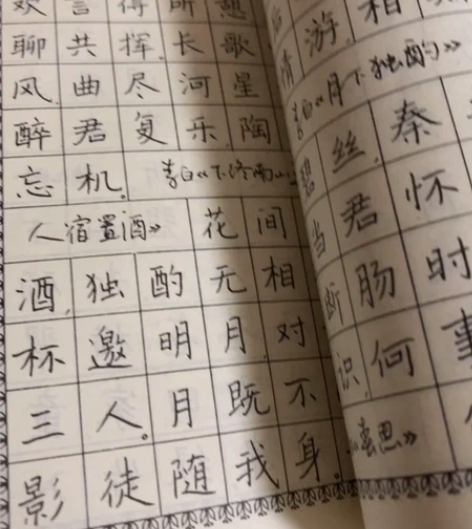 欢言得所憩
聊共挥.长歌
风.曲尽河星
醉君复乐,陶
忘机.李白《下终南山
人宿置酒》花间
酒,独酌无相
杯邀明月,对
三人。月既不
影徒随我身.
游相
情
白《月下独酌》
碧丝.秦
当君怀
断肠时
识,何事
春思》